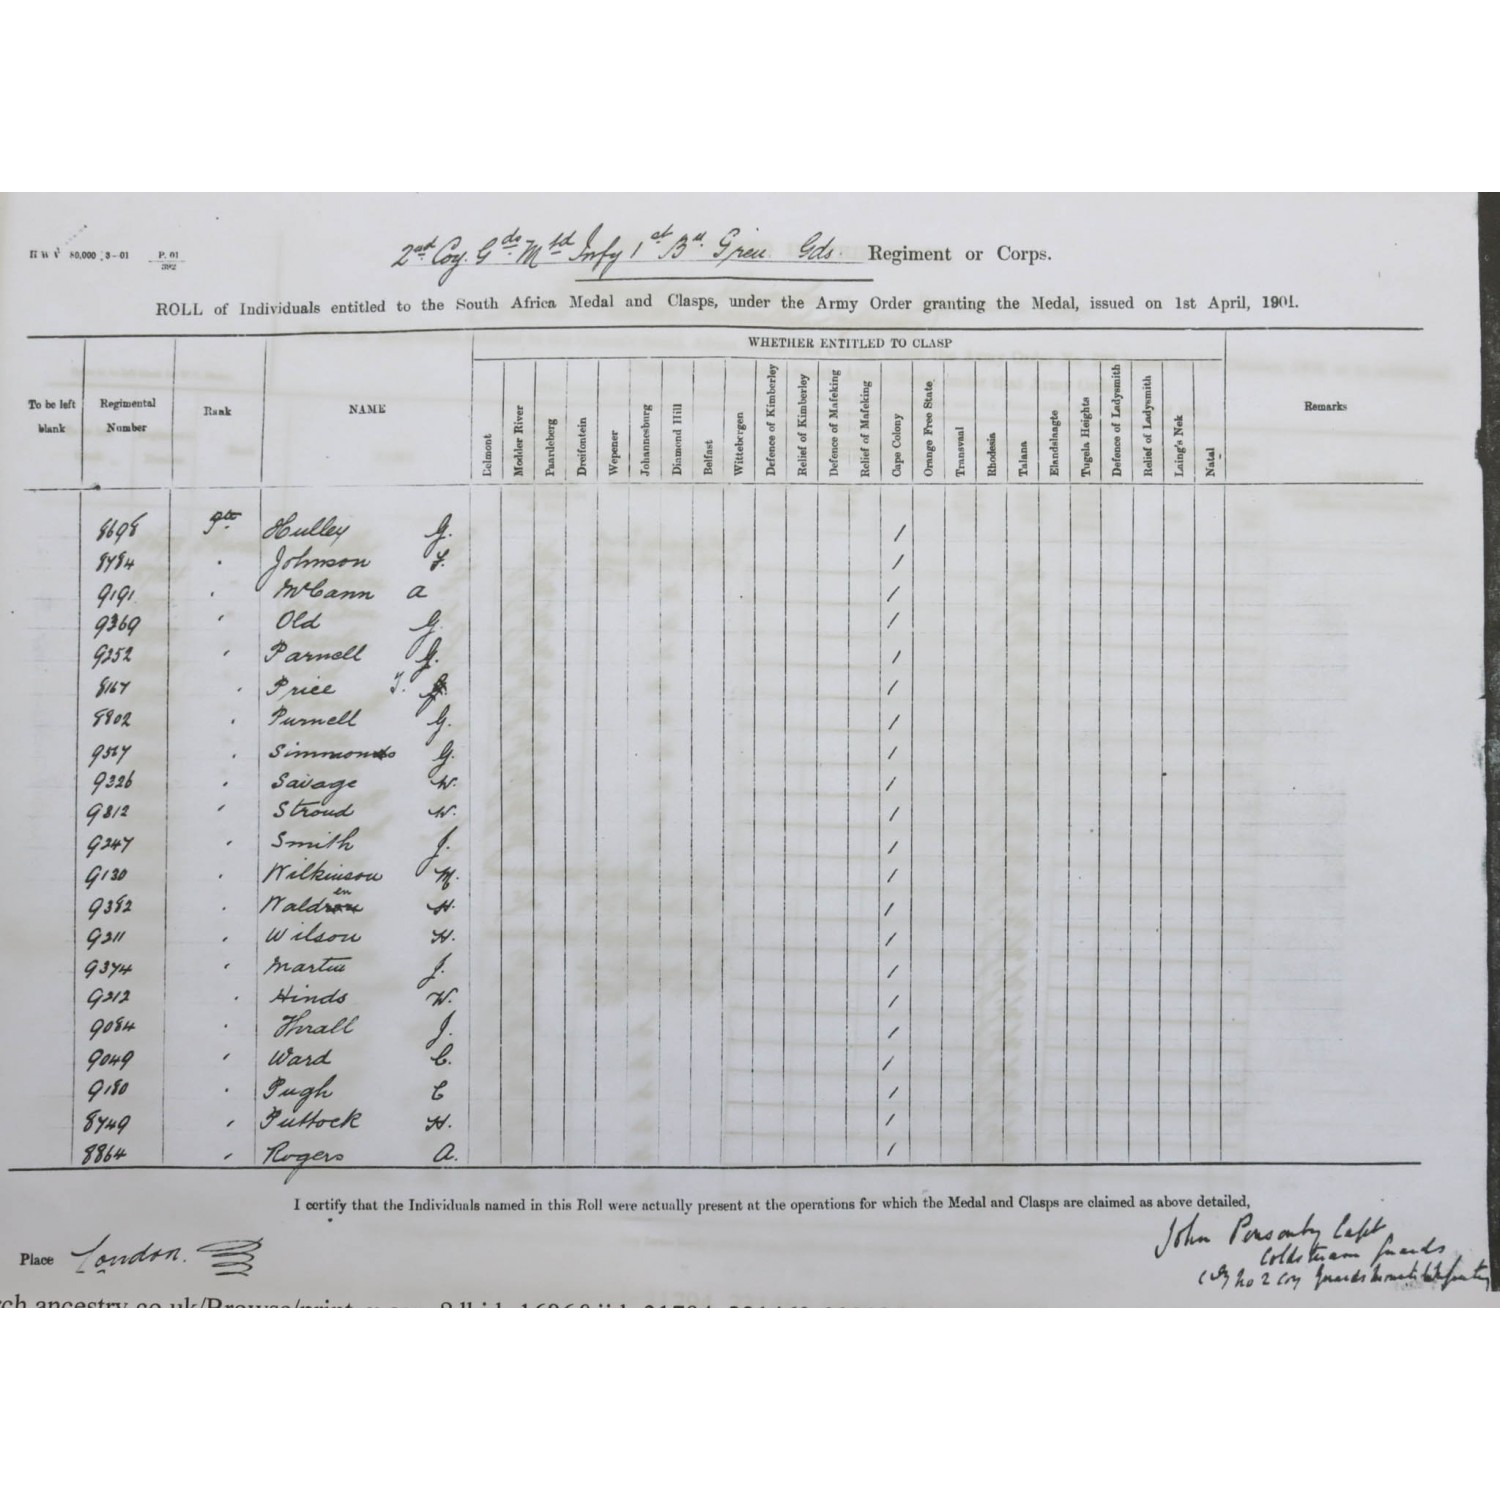 2nd Coy. Gds Mtd Infy 1st Bn Gren Gds. Regiment or Corps.
H W V 80,000 3-01 P. 01/392
ROLL of Individuals entitled to the South Africa Medal and Clasps, under the Army Order granting the Medal, issued on 1st April, 1901.
WHETHER ENTITLED TO CLASP
To be left blank Regimental Number Rank NAME Belmont Modder River Paardeberg Dreifontein Wepener Johannesburg Diamond Hill Belfast Wittebergen Defence of Kimberley Relief of Kimberley Defence of Mafeking Relief of Mafeking Cape Colony Orange Free State Transvaal Rhodesia Talana Elandslaagte Tugela Heights Defence of Ladysmith Relief of Ladysmith Laing's Nek Natal Remarks
8698 Pte Hulley G. /
8484 " Johnson F. /
9191 " McCann A /
9369 " Old G. /
9252 " Parnell G. /
8167 " Price J. /
8802 " Purnell G. /
9567 " Simmonds G. /
9326 " Savage W. /
9812 " Stroud W. /
9247 " Smith J. /
9130 " Wilkinson M. /
9382 " Walden H. /
9211 " Wilson H. /
9374 " Martin J. /
9212 " Hinds W. /
9084 " Thrall J. /
9049 " Ward C. /
9180 " Pugh C /
8749 " Puttock H. /
8864 " Rogers A. /
I certify that the Individuals named in this Roll were actually present at the operations for which the Medal and Clasps are claimed as above detailed,
Place London.
John Ponsonby Capt
Coldstream Guards
Cdg No 2 Coy Guards Mounted Infantry